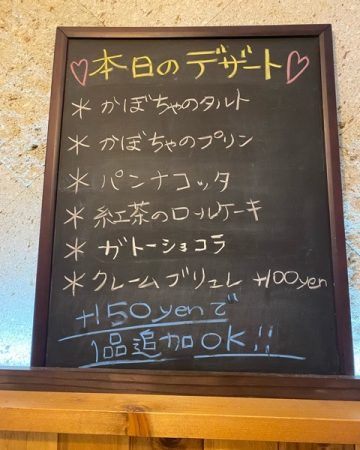 ♡本日のデザート♡
＊かぼちゃのタルト
＊かぼちゃのプリン
＊パンナコッタ
＊紅茶のロールケーキ
＊ガトーショコラ
＊クレームブリュレ +100yen
+150yenで
1品追加OK!!